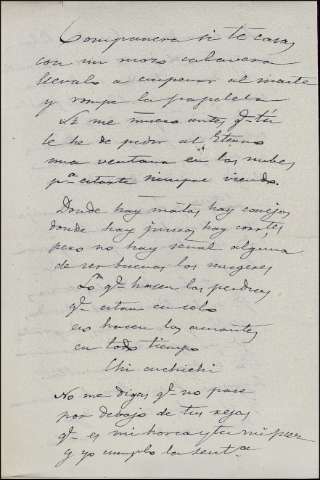 Compañera si te casas
con un mozo calavera
llevalo a empeñar al monte
y rompe la papeleta
Si me muero antes qe tu
le he de pedir al Eterno
una ventana en las nubes
pa estarte siempre viendo.
Donde hay matas hay conejos
donde hay juncos hay
pero no hay señal alguna
de ser buenas las mujeres
Lo qe hacen las perdices
qe estan en celo
eso hacen los amantes
en todo tiempo
Chi cuchichi
No me digas qe no pase
por debajo de tus rejas
qe es mi horca y tu mi juez
y yo cumplo la senta